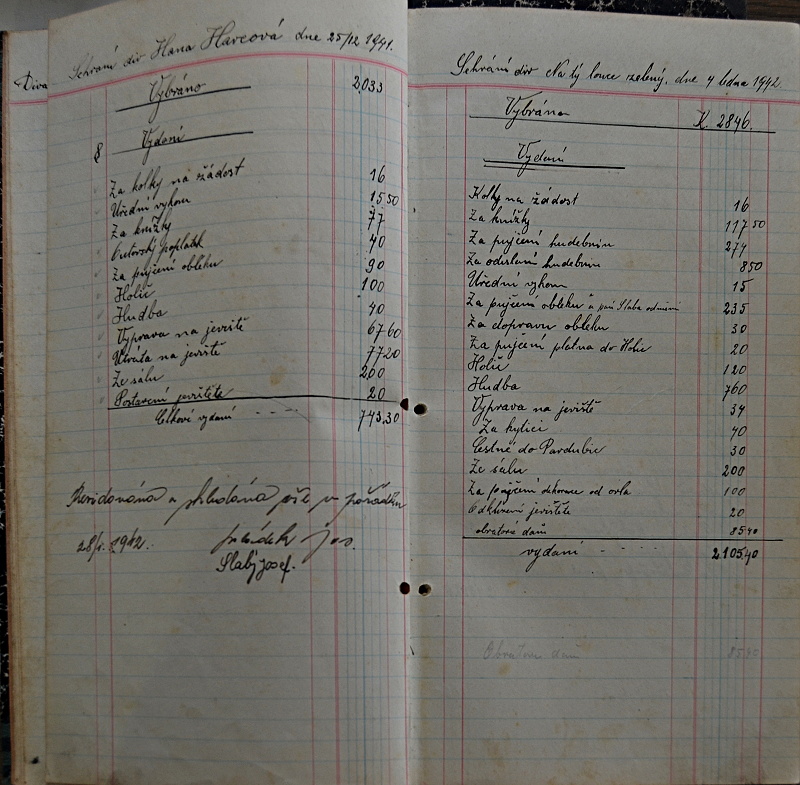 Diva
Sehrání div Hana Harcová dne 25/12 1941.
Vybráno 2033
8 Vydání
Za kolky na žádost 16
Úřední výkon 15 50
Za knížky 77
Autorský poplatek 40
Za pujčení obleku 90
Holič 100
Hudba 40
Výprava na jeviště 67 60
Útrata na jeviště 77 20
Ze sálu 200
Postavení jevištěte 20
Celkové vydání - - - - 743.30
Revidována a shledána vše v pořádku
28/1. 1942. Jos.
Slabý Josef.
Sehrání div Na tý louce zelený, dne 4 ledna 1942.
Vybráno K. 2846.
Vydání
Kolky na žádost 16
Za knížky 117 50
Za pujčení hudebnin 277
Za odeslání hudebnin 8 50
Úřední výkon 15
Za pujčení obleku a paní Slaba 235
Za dopravu obleku 30
Za pujčení platna do Holic 20
Holič 120
Hudba 760
Výprava na jeviště 34
Za kytici 40
Cestné do Pardubic 30
Ze sálu 200
Za pujčení dekorace od orla 100
Odklizení jevištěte 20
obratová daň 85.40
vydání - - - - 2.105.40
Obratova daň 85.40